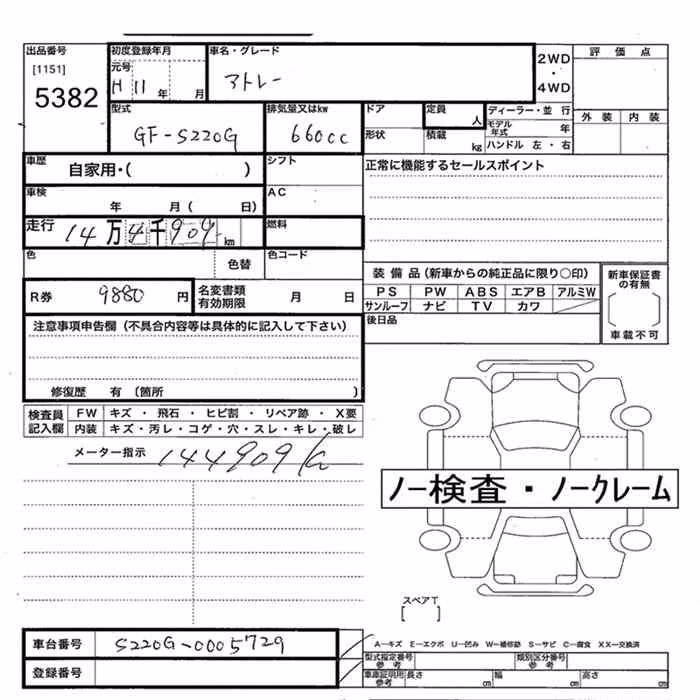 出品番号 初度登録年月 車名・グレード 2WD・4WD 評価点
[1151] 元号
5382 H 11 年 月 アトレー
型式 排気量又はkw ドア 定員 人 ディーラー・並行 外装 内装
GF-S220G 660cc 形状 積載 kg モデル年式 年
ハンドル 左・右
車歴 自家用・( ) シフト 正常に機能するセールスポイント
車検 年 月( 日) AC
走行 14万4千909km 燃料
色 色替 色コード
装備品(新車からの純正品に限り○印) 新車保証書の有無
R券 9880円 名変書類有効期限 月 日 PS PW ABS エアB アルミW
サンルーフ ナビ TV カワ
注意事項申告欄(不具合内容等は具体的に記入して下さい) 後日品 車載不可
修復歴 有(箇所 )
検査員記入欄 FW キズ・飛石・ヒビ割・リペア跡・X要
内装 キズ・汚レ・コゲ・穴・スレ・キレ・破レ
メーター指示 144909K
ノー検査・ノークレーム
スペアT
[ ]
車台番号 S220G-0005729 A-キズ E-エクボ U-凹み W-補修跡 S-サビ C-腐食 XX-交換済
登録番号 型式指定番号 参考 類別区分番号 参考
車庫証明用 参考 長さ cm 幅 cm 高さ cm